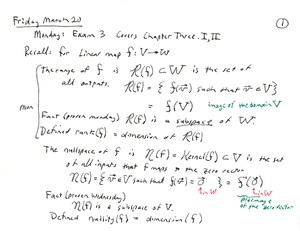 Friday March 20
①
Monday: Exam 3 Covers Chapter Three. I, II
Recall: for Linear map f: V→W
the range of f is R(f) ⊂ W is the set of
all outputs. R(f) = { f(v⃗) such that v⃗ ∈ V }
= f(V) image of the domain V
Fact (proven monday) R(f) is a subspace of W.
Defined rank(f) = dimension of R(f)
The nullspace of f is N(f) = Kernel(f) ⊂ V is the set
of all inputs that f maps to the zero vector
N(f) = { v⃗ ∈ V such that f(v⃗) = 0⃗ } = f⁻¹(0⃗)
in W in W
preimage
of the zero vector
Fact (proven wednesday)
N(f) is a subspace of V.
Defined nullity(f) = dimension(f)